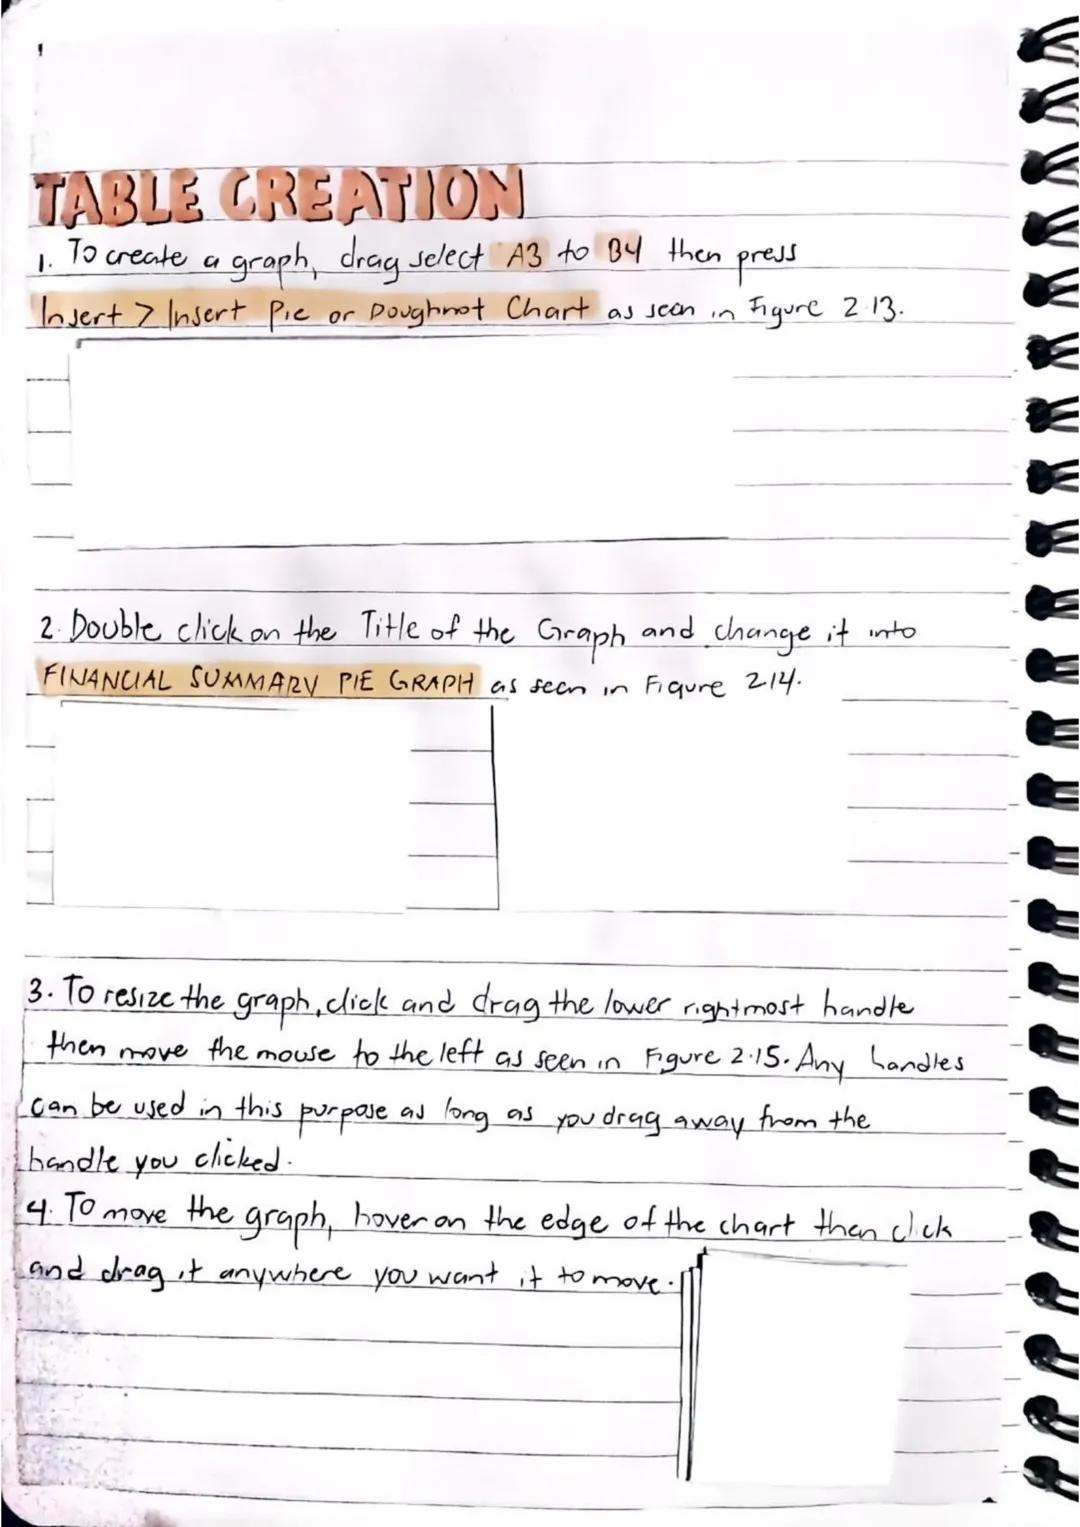 TABLE CREATION
1. To create a graph, drag select A3 to B4 then press
Insert > Insert Pie or Doughnot Chart as seen in Figure 2.13.
2. Double click on the Title of the Graph and change it into
FINANCIAL SUMMARY PIE GRAPH as seen in Figure 2.14.
3. To resize the graph, click and drag the lower rightmost handle
then move the mouse to the left as seen in Figure 2.15. Any handles
can be used in this purpose as long as you drag away from the
handle you clicked.
4. To move the graph, hover on the edge of the chart then click
and drag it anywhere you want it to move.